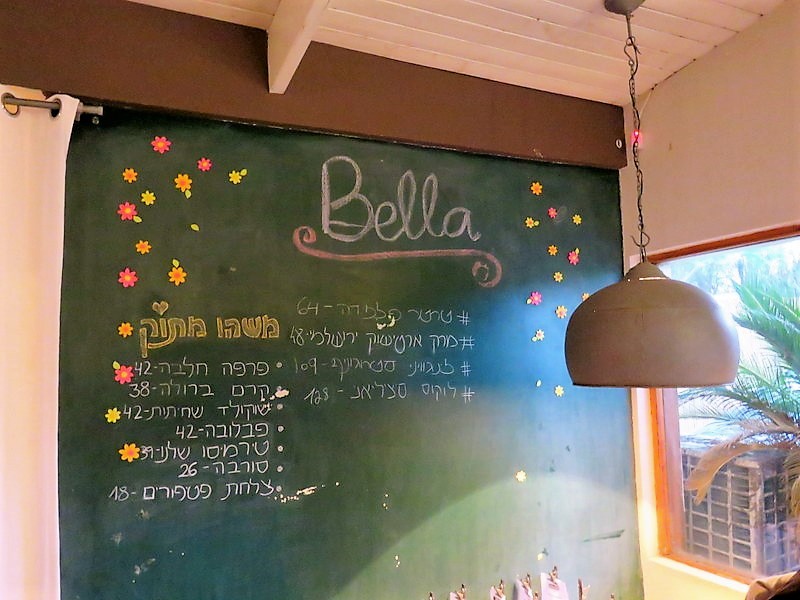 Bella
# טרטר פלמידה - 64
# מרק ארטישוק ירושלמי - 48
# לינגוויני - 109
# לוקוס סציליאני - 128
משהו מתוק
פרפה חלבה - 42
קרם ברולה - 38
שוקולד שחיתות - 42
פבלובה - 42
טירמיסו שלנו - 39
סורבה - 26
צלחת פטיפורים - 18